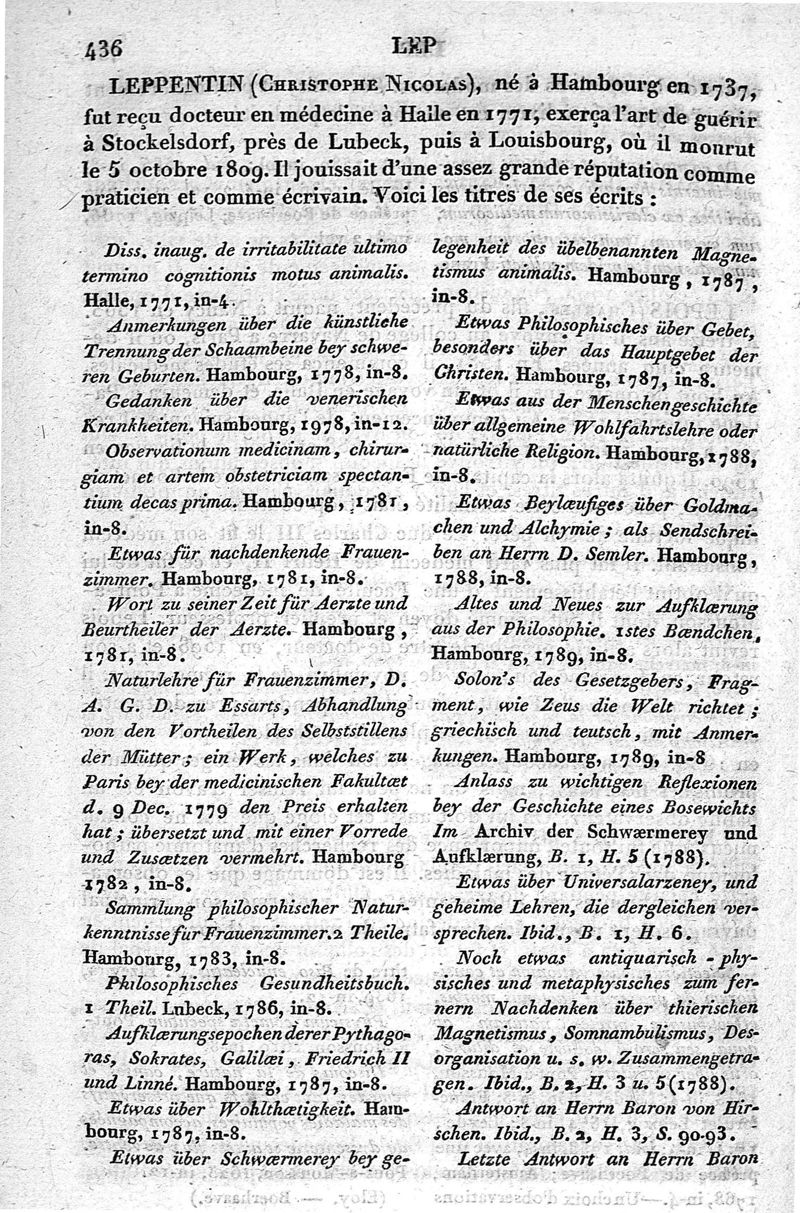 436 LEP
LEPPENTIN (Christophe Nicolas), né à Hambourg en 1737,
fut reçu docteur en médecine à Halle en 1771, exerça l'art de guérir
à Stockelsdorf, près de Lubeck, puis à Louisbourg, où il mourut
le 5 octobre 1809. Il jouissait d'une assez grande réputation comme
praticien et comme écrivain. Voici les titres de ses écrits :
Diss. inaug. de irritabilitate ultimo
termino cognitionis motus animalis.
Halle, 1771, in-4.
Anmerkungen über die künstliche
Trennung der Schaambeine bey schwe-
ren Geburten. Hambourg, 1778, in-8.
Gedanken über die venerischen
Krankheiten. Hambourg, 1978, in-12.
Observationum medicinam, chirur-
giam et artem obstetriciam spectan-
tium decas prima. Hambourg, 1781,
in-8.
Etwas für nachdenkende Frauen-
zimmer. Hambourg, 1781, in-8.
Wort zu seiner Zeit für Aerzte und
Beurtheiler der Aerzte. Hambourg,
1781, in-8.
Naturlehre für Frauenzimmer, D.
A. G. D. zu Essarts, Abhandlung
von den Vortheilen des Selbststillens
der Mütter ; ein Werk, welches zu
Paris bey der medicinischen Fakultæt
d. 9 Dec. 1779 den Preis erhalten
hat ; übersetzt und mit einer Vorrede
und Zusætzen vermehrt. Hambourg
1782, in-8.
Sammlung philosophischer Natur-
kenntnisse fur Frauenzimmer. 2 Theile.
Hambourg, 1783, in-8.
Philosophisches Gesundheitsbuch.
1 Theil. Lubeck, 1786, in-8.
Aufklærungsepochen derer Pythago-
ras, Sokrates, Galilæi, Friedrich II
und Linné. Hambourg, 1787, in-8.
Etwas über Wohlthætigkeit. Ham-
bourg, 1787, in-8.
Etwas über Schwærmerey bey ge-
legenheit des übelbenannten Magne-
tismus animalis. Hambourg, 1787,
in-8.
Etwas Philosophisches über Gebet,
besonders über das Hauptgebet der
Christen. Hambourg, 1787, in-8.
Etwas aus der Menschengeschichte
über allgemeine Wohlfahrtslehre oder
natürliche Religion. Hambourg, 1788,
in-8.
Etwas Beylæufiges über Goldma-
chen und Alchymie ; als Sendschrei-
ben an Herrn D. Semler. Hambourg,
1788, in-8.
Altes und Neues zur Aufklærung
aus der Philosophie. 1stes Bændchen,
Hambourg, 1789, in-8.
Solon's des Gesetzgebers, Frag-
ment, wie Zeus die Welt richtet ;
griechisch und teutsch, mit Anmer-
kungen. Hambourg, 1789, in-8
Anlass zu wichtigen Reflexionen
bey der Geschichte eines Bosewichts
Im Archiv der Schwærmerey und
Aufklærung, B. 1, H. 5 (1788).
Etwas über Universalarzeney, und
geheime Lehren, die dergleichen ver-
sprechen. Ibid., B. 1, H. 6.
Noch etwas antiquarisch - phy-
sisches und metaphysisches zum fer-
nern Nachdenken über thierischen
Magnetismus, Somnambulismus, Des-
organisation u. s. w. Zusammengetra-
gen. Ibid., B. 2, H. 3 u. 5 (1788).
Antwort an Herrn Baron von Hir-
schen. Ibid., B. 2, H. 3, S. 90-93.
Letzte Antwort an Herrn Baron